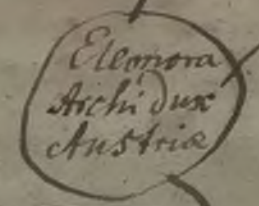 Eleonora
Archi dux
Austriæ